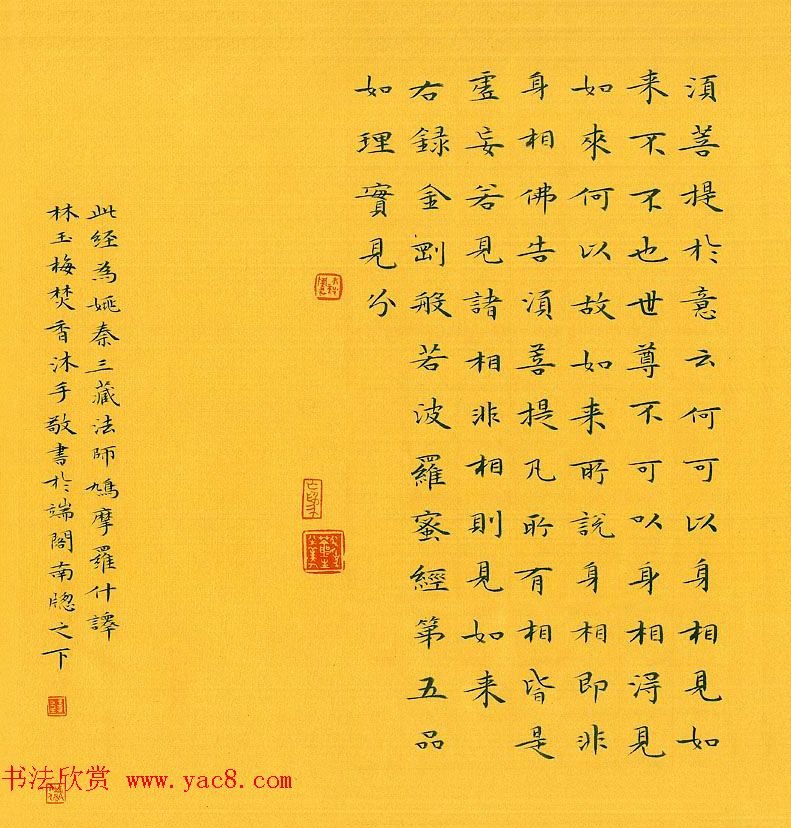 須菩提於意云何可以身相見如
来不不也世尊不可以身相淂見
如來何以故如来所說身相即非
身相佛告須菩提凡所有相皆是
虛妄若見諸相非相則見如来
右録金剛般若波羅蜜經第五品
如理實見分
此経為姚秦三藏法師鳩摩羅什譯
林玉梅焚香沐手敬書於端閣南牕之下
书法欣赏 www.yac8.com